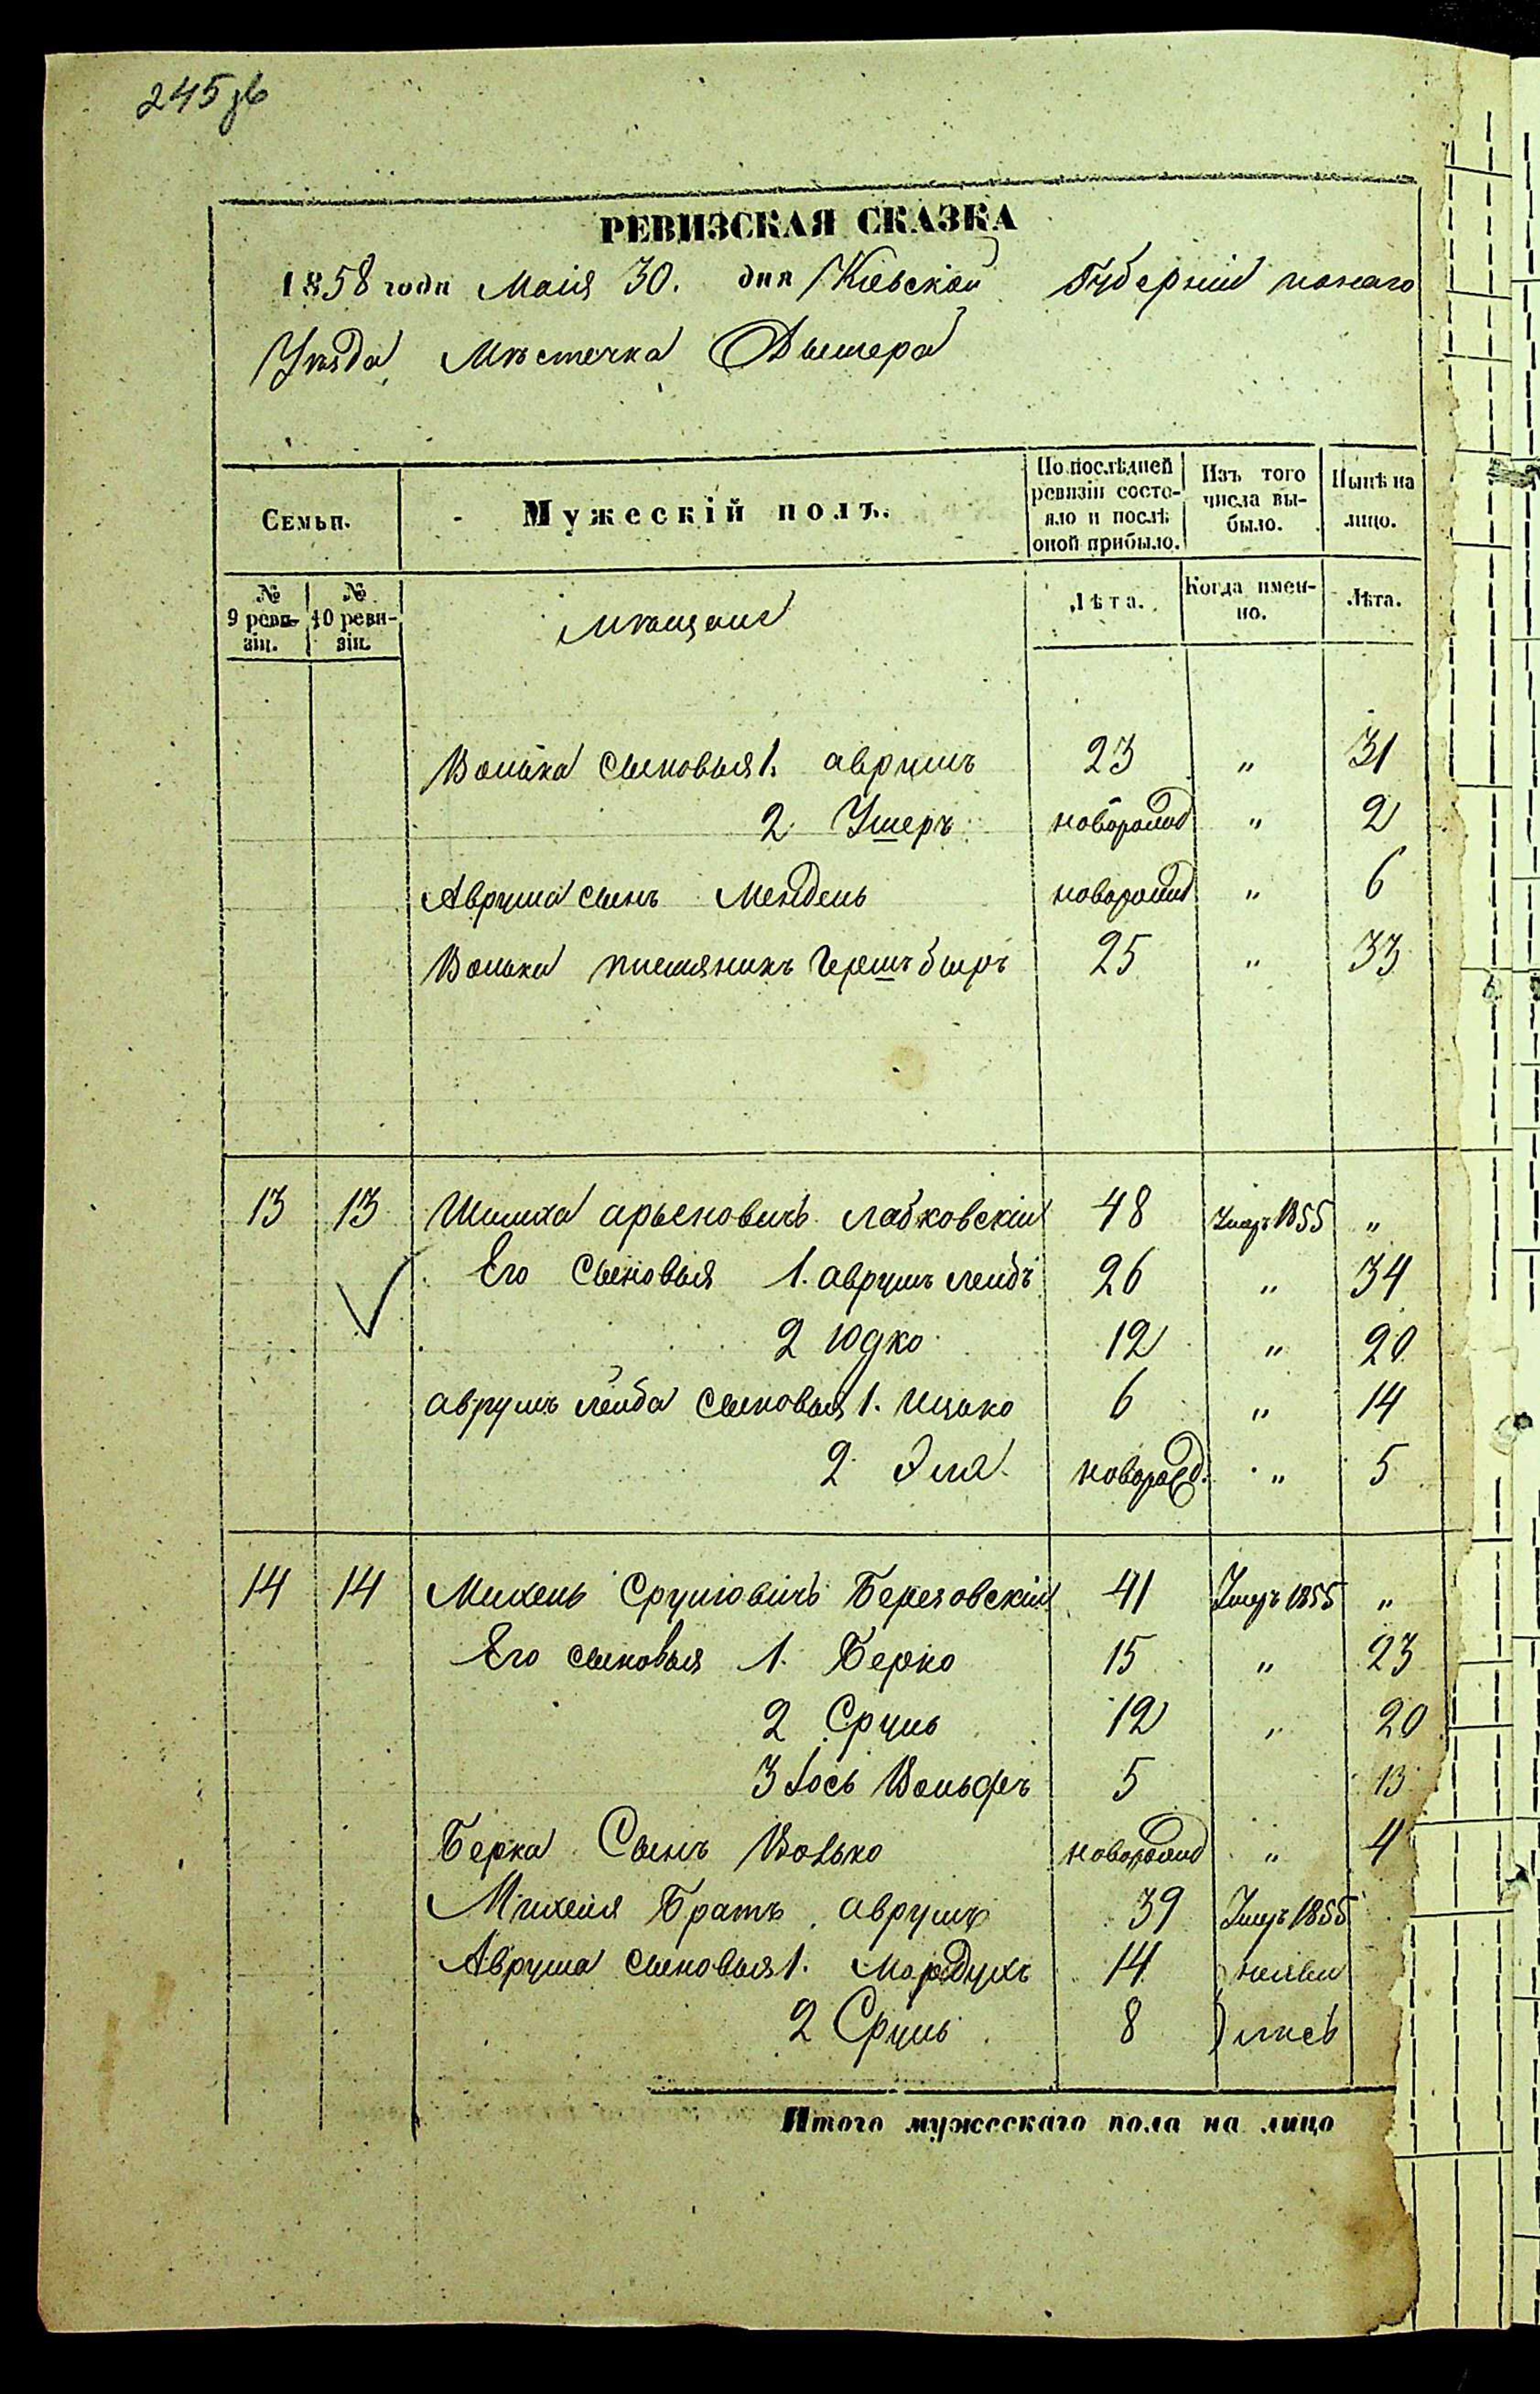 245 зв
РЕВИЗСКАЯ СКАЗКА
1858 года Маія 30. дня Кіевской Губерніи тогожъ
Уѣзда Мѣстечка Дымера
Семьи. Мужескій полъ. По послѣдней ревизіи состояло и послѣ оной прибыло. Изъ того числа выбыло. Нынѣ на лицо.
№ 9 ревизіи. № 10 ревизіи. Мѣщане Лѣта. Когда именно. Лѣта.
Волька сыновья 1. аврумъ 23 " 31
2 Ушеръ новорожд " 2
Аврума сынъ Мендель новорожд " 6
Волька племяникъ Гершъ беръ 25 " 33
13 13 арьеновичъ Лабковскій 48 Умеръ 1855 "
Его Сыновья 1. аврумъ лейбъ 26 " 34
2 Юдко 12 " 20
аврумъ лейба сыновья 1. Ицько 6 " 14
2 Эля новорожд. " 5
14 14 Михель Срулювичъ Березовскій 41 Умеръ 1855 "
Его сыновья 1. Берко 15 " 23
2 Сруль 12 " 20
3 Іось Вольфъ 5 13
Берка Сынъ Волько новорожд " 4
Михеля Братъ аврумъ 39 Умеръ 1855
Аврума сыновья 1. Мордухъ 14 неяви
2 Сруль 8 лись
Итого мужескаго пола на лицо